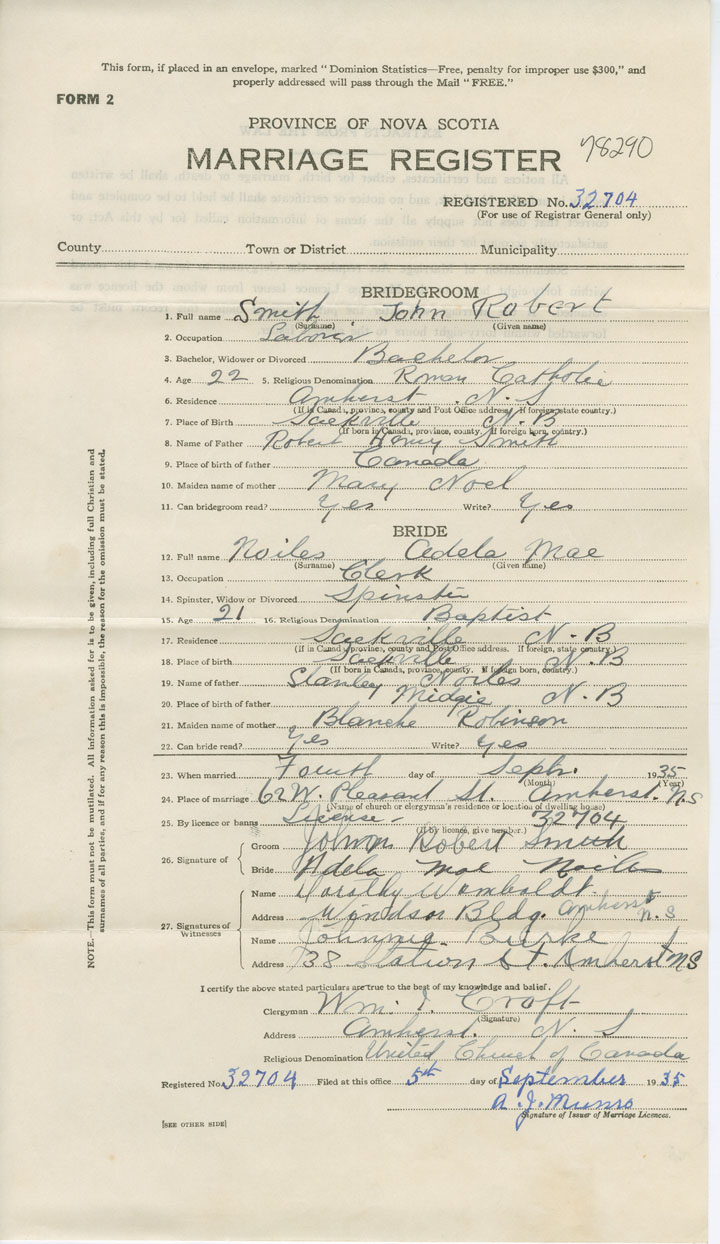 This form, if placed in an envelope, marked "Dominion Statistics—Free, penalty for improper use $300," and
properly addressed will pass through the Mail "FREE."
FORM 2
PROVINCE OF NOVA SCOTIA
MARRIAGE REGISTER 78290
REGISTERED No. 32704
(For use of Registrar General only)
County Town or District Municipality
BRIDEGROOM
1. Full name Smith John Robert
(Surname) (Given name)
2. Occupation Laborer
3. Bachelor, Widower or Divorced Bachelor
4. Age 22 5. Religious Denomination Roman Catholic
6. Residence Amherst N. S
(If in Canada, province, county and Post Office address. If foreign, state country.)
7. Place of Birth Sackville N. B
(If born in Canada, province, county. If foreign born, country.)
8. Name of Father Robert Henry Smith
9. Place of birth of father Canada
10. Maiden name of mother Mary Noel
11. Can bridegroom read? Yes Write? Yes
BRIDE
12. Full name Noiles Adela Mae
(Surname) (Given name)
13. Occupation Clerk
14. Spinster, Widow or Divorced Spinster
15. Age 21 16. Religious Denomination Baptist
17. Residence Sackville N. B
(If in Canada, province, county and Post Office address. If foreign, state country.)
18. Place of birth Sackville N. B
(If born in Canada, province, county. If foreign born, country.)
19. Name of father Stanley Noiles
20. Place of birth of father Midgic N. B
21. Maiden name of mother Blanche Robinson
22. Can bride read? Yes Write? Yes
23. When married Fourth day of Septr. 1935
(Month) (Year)
24. Place of marriage 62 W. Pleasant St. Amherst. N.S
(Name of church or clergyman's residence or location of dwelling house)
25. By licence or banns License - 32704
(If by licence, give number.)
26. Signature of
Groom John Robert Smith
Bride Adela Mae Noiles
27. Signatures of
Witnesses
Name Dorothy Wamboldt
Address Windsor Bldg. Amherst N.S
Name Johnnie Burke
Address 38 Station St. Amherst NS
I certify the above stated particulars are true to the best of my knowledge and belief.
Clergyman Wm. I. Croft
(Signature)
Address Amherst. N. S
Religious Denomination United Church of Canada
Registered No. 32704 Filed at this office 5th day of September 1935
A. J. Munro
Signature of Issuer of Marriage Licences.
[SEE OTHER SIDE]
NOTE.—This form must not be mutilated. All information asked for is to be given, including full Christian and
surnames of all parties, and if for any reason this is impossible, the reason for the omission must be stated.